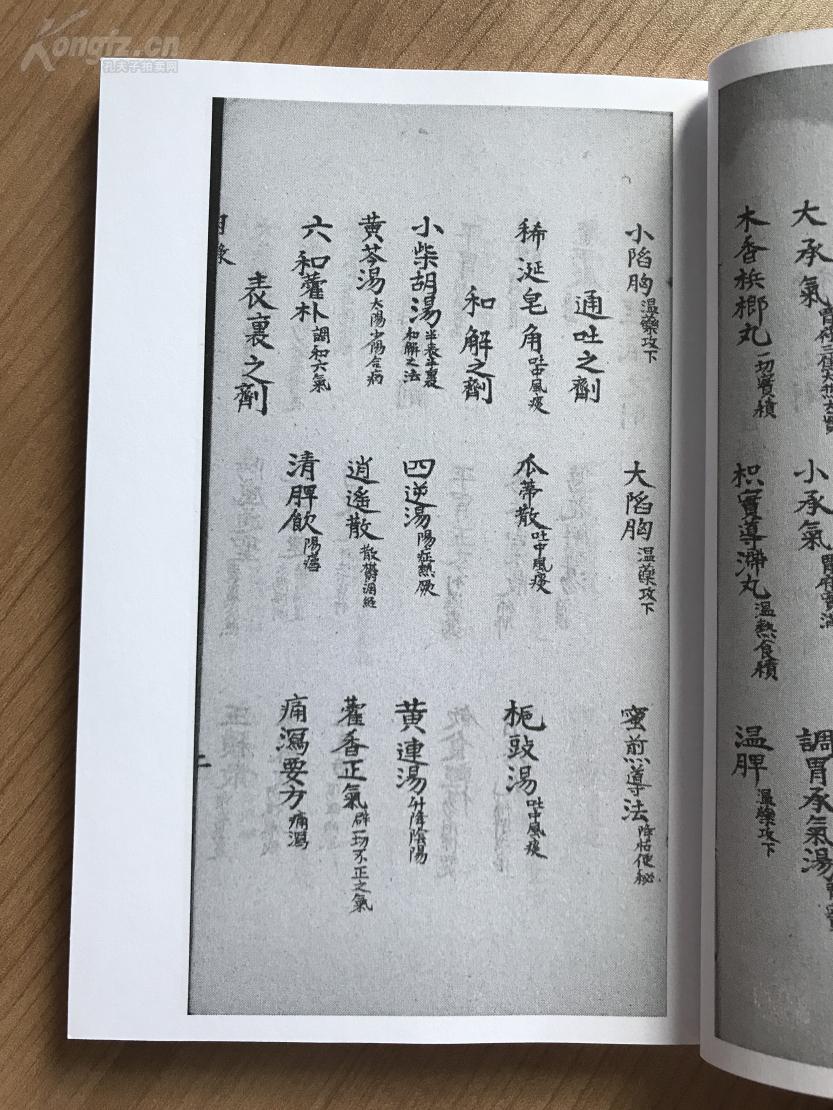 Kongfz.cn
孔夫子拍卖网
大承氣
小承氣
調胃承氣湯
木香梹榔丸 一切實積
枳實導滯丸 温熱食積
温脾 温藥攻下
小陷胸 温藥攻下
大陷胸 温藥攻下
蜜煎導法 降枯便秘
通吐之劑
稀涎皂角 吐中風痰
瓜蒂散 吐中風痰
梔豉湯 吐中風痰
和解之劑
小柴胡湯 半表半裏和解之法
四逆湯 陽症熱厥
黄連湯 升降陰陽
黄芩湯 太陽少陽合病
逍遙散 散鬱調經
藿香正氣 辟一切不正之氣
六和藿朴 調和六氣
清脾飲 陽瘧
痛瀉要方 痛瀉
表裏之劑
目錄